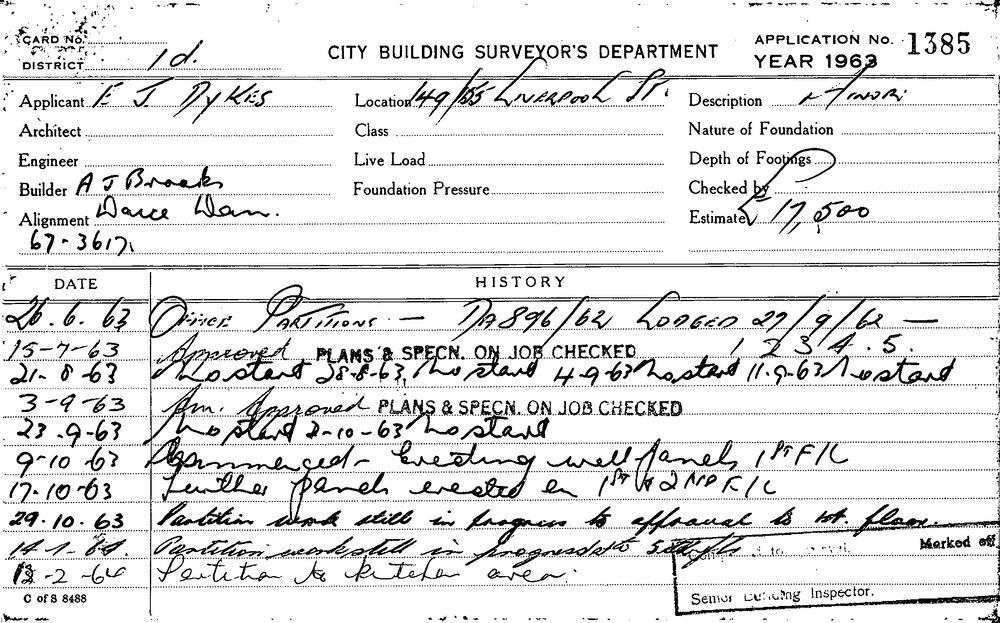 CARD No.
DISTRICT 1d.
CITY BUILDING SURVEYOR'S DEPARTMENT
APPLICATION No. 1385
YEAR 1963
Applicant E J. DYKES
Location 149/155 LIVERPOOL ST.
Description MINOR
Architect
Class
Nature of Foundation
Engineer
Live Load
Depth of Footings
Builder A J Brooks
Foundation Pressure
Checked by
Alignment
Estimate £ 17,500
67-3617.
DATE HISTORY
26.6.63 OFFICE PARTITIONS — DA 896/62 LODGED 27/9/62 —
15-7-63 Approved PLANS & SPECN. ON JOB CHECKED 1 2 3 4 . 5.
21-8-63 No start 28-8-63, No start 4-9-63 No start 11-9-63 No start
3-9-63 Am. Approved PLANS & SPECN. ON JOB CHECKED
23.9-63 No start 2-10-63 No start
9-10-63 Commenced - Erecting wall panels 1st F/L
17.10-63 Further panels erected on 1ST & 2ND F/L
29.10.63 Partition work still in progress to approval to 1st. floor.
Partition work still in progress to
-2-64 Partition to kitchen area.
Marked off
Senior Building Inspector.
C of S 8488